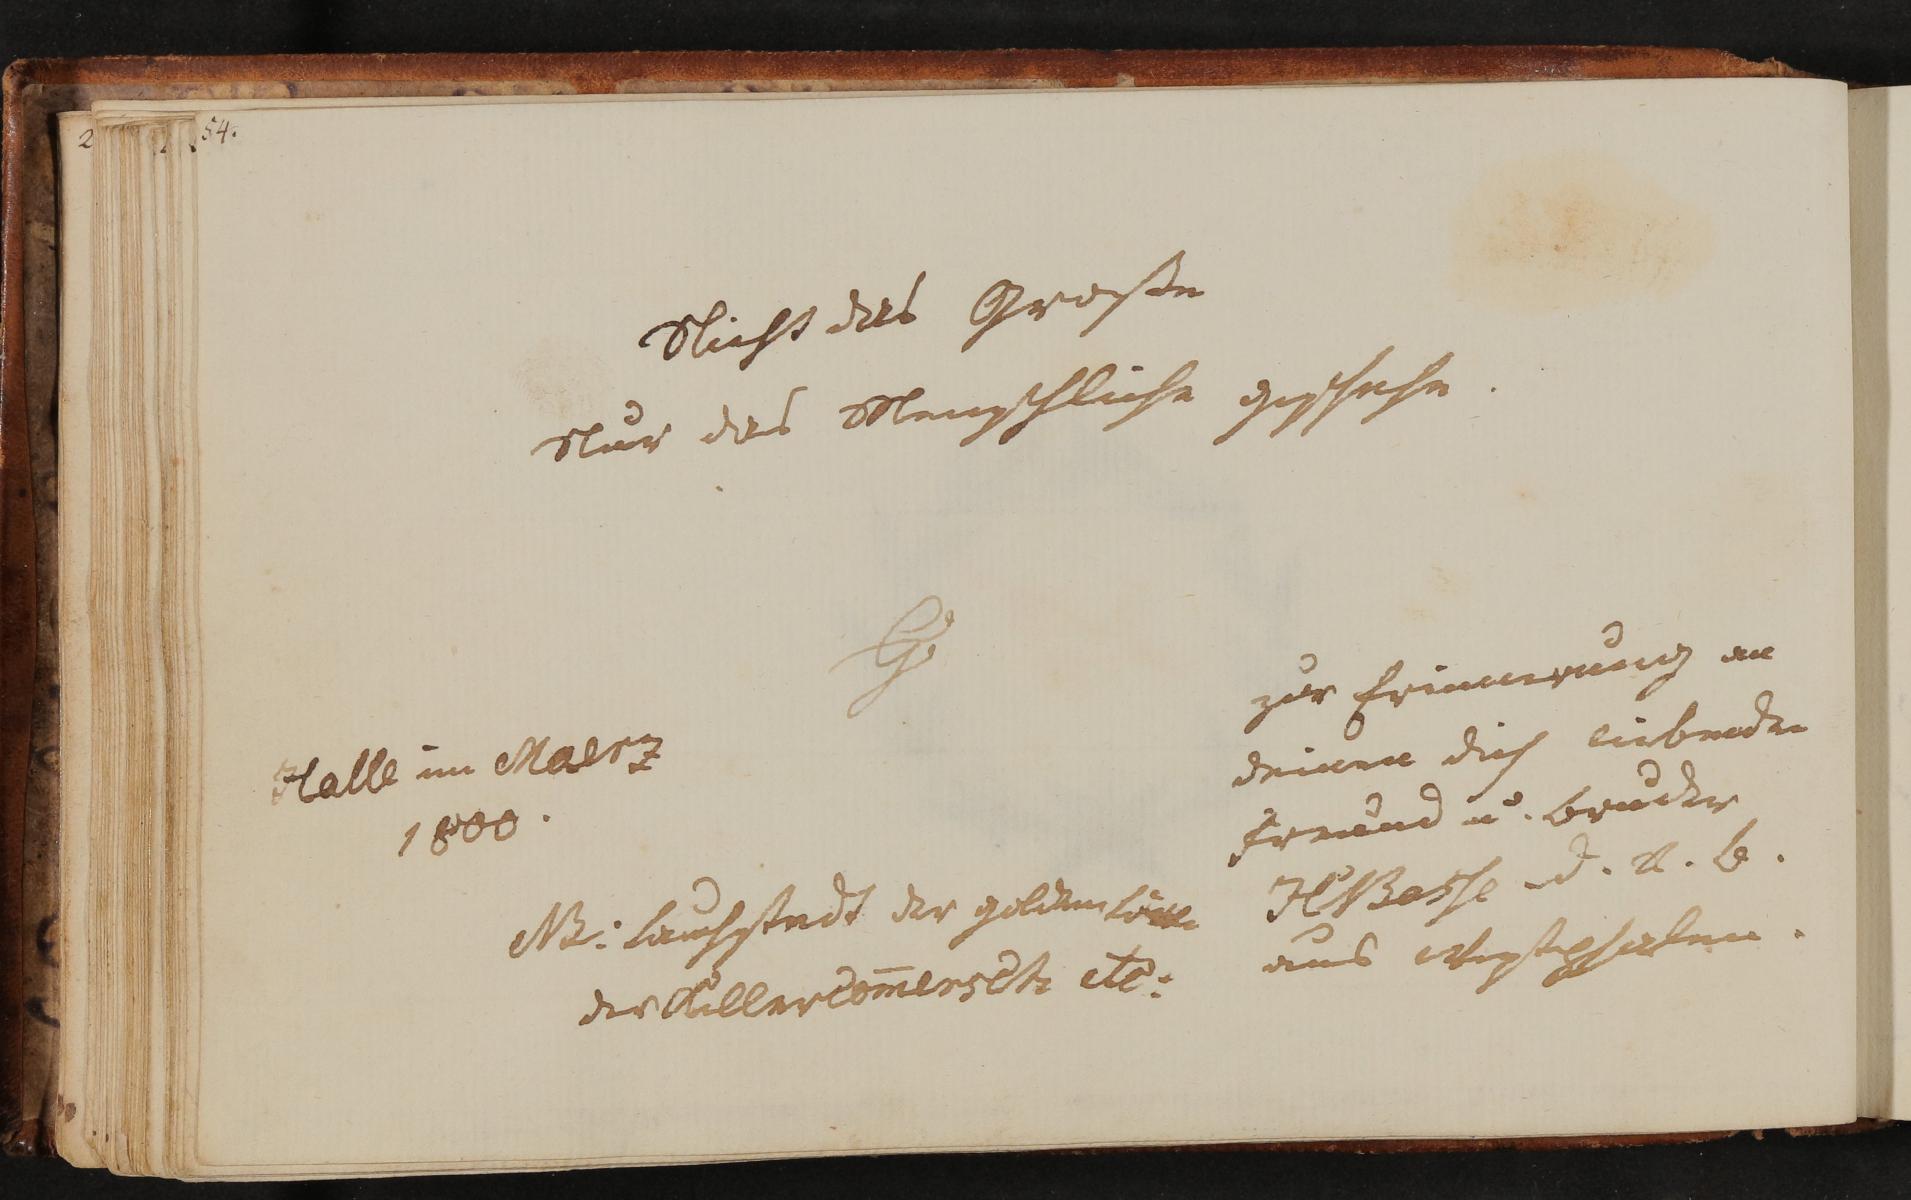 54.
2
Nicht das Große
Nur das Menschliche geschehe.
G.
Halle im Maerz
1800.
zur Erinnerung an
deinen dich liebenden
Freund u. Bruder
HWBosse d. R. B.
aus Westphalen.
NB: Lauchstedt der goldene Löwe
der etc: